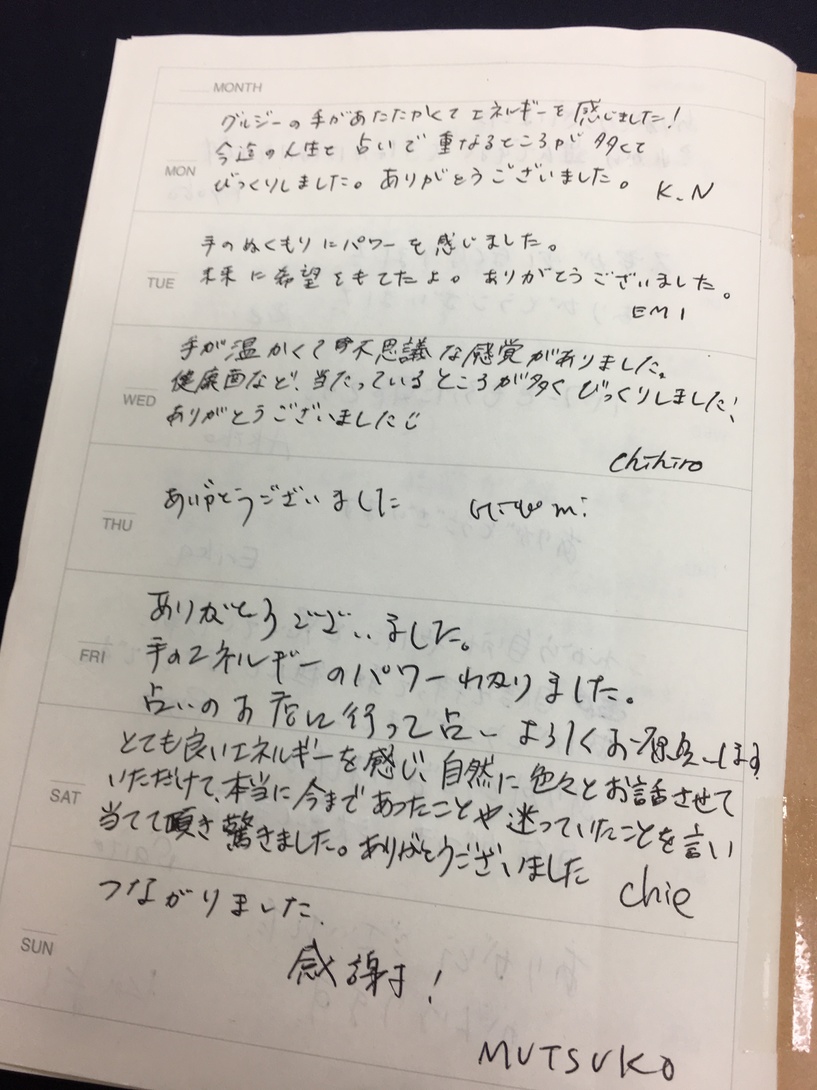 MONTH
グルジーの手があたたかくてエネルギーを感じました!
今迄の人生と占いで重なるところが多くて
MON
びっくりしました。ありがとうございました。 K.N
手のぬくもりにパワーを感じました。
TUE
未来に希望をもてたよ。ありがとうございました。
EMI
手が温かくて不思議な感覚がありました。
健康面など、当たっているところが多くびっくりしました!
WED
ありがとうございました
chihiro
ありがとうございました
THU
ありがとうございました。
手のエネルギーのパワーわかりました。
FRI
占いのお店に行って占い よろしくお願いします
とても良いエネルギーを感じ、自然に色々とお話させて
いただけて、本当に今まであったことや迷っていたことを言い
SAT
当てて頂き驚きました。ありがとうございました chie
つながりました.
SUN
感謝!
MUTSUKO